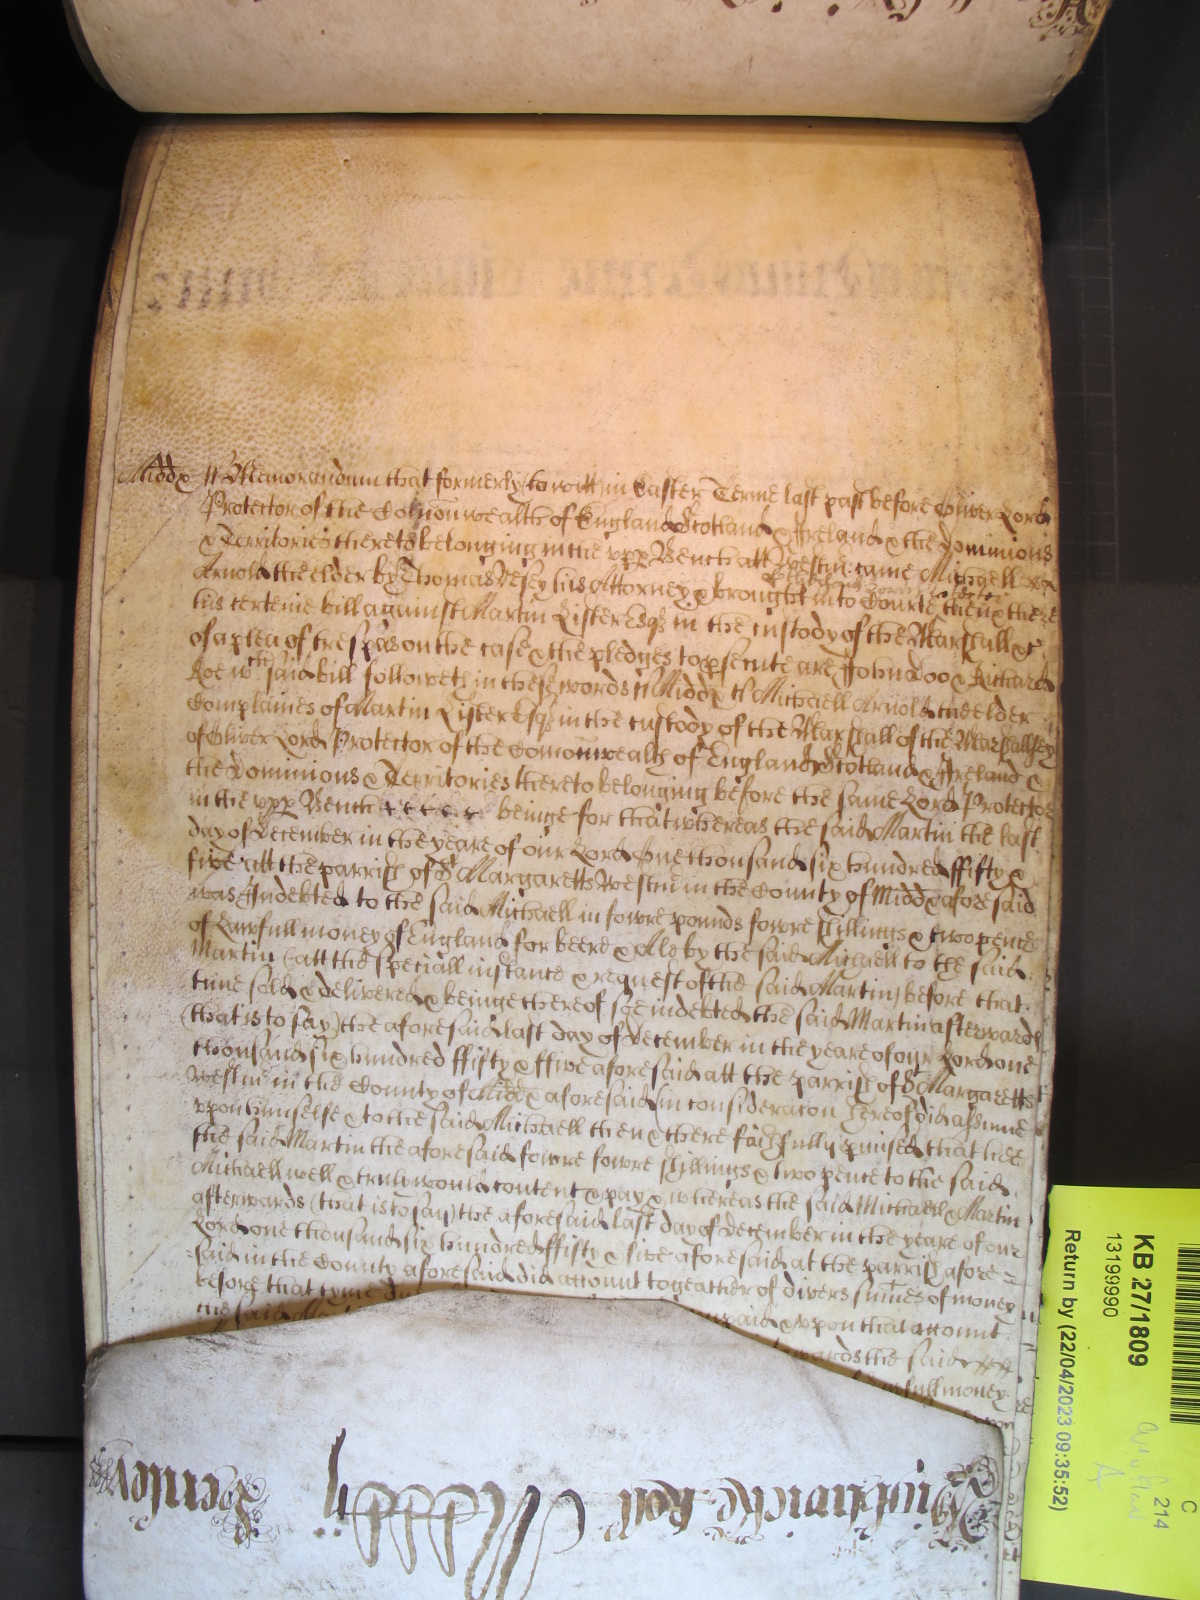 Middx // Memorandum that formerly (to witt) in Easter Terme last past before Oliver Lord
Protector of the Comonwealth of England Scotland & Ireland & the dominions
& Territories thereto belonging in the vpp Bench att Westm: came Michaell
Arnold the elder by Thomas Vesey his Attorney & brought into Courte then & there
his certeine bill against Martin Lister Esqr in the custody of the Marshall &c
of a plea of trespas on the case & the pledges to psecute are John Doo & Richard
Roe wch said bill followeth in these words ss Middx ss Michaell Arnold the elder
Complaines of Martin Lister Esqr in the custody of the Marshall of the Marshallsey
of Oliver Lord Protector of the Comonwealth of England Scotland & Ireland &
the dominions & Territories thereto belonging before the same Lord Protector
in the vpp Bench beinge for that whereas the said Martin the last
day of December in the yeare of our Lord One thousand six hundred ffifty &
five att the parrish of St Margaretts Westm in the County of Middx aforesaid
was Indebted to the said Michaell in fowre pounds fowre shillings & two pence
of Lawfull money of England for beere & Ale by the said Michaell to the said
Martin (att the speciall instance & request of the said Martin) before that
time sold & delivered & beinge thereof soe indebted the said Martin afterwards
(that is to say) the aforesaid last day of December in the yeare of our Lord one
thousand six hundred ffifty & ffive aforesaid att the parrish of St Margaretts
Westm in the County of Middx aforesaid in consideracon hereof did assume
vpon himselfe & to the said Michaell then & there faithfully pmised that hee
the said Martin the aforesaid fowre fowre shillings & two pence to the said
Michaell well & truly would content & pay & whereas the said Michaell & Martin
afterwards (that is to say) the aforesaid last day of December in the yeare of our
Lord one thousand six hundred ffifty & five aforesaid at the parrish afore=
=said in the County aforesaid did account togeather of divers sumes of money
before that tyme
the said vnpaid & vpon that account
wards the said
full money
KB 27/1809
13199990
Return by (22/04/2023 09:35:52)
C
214